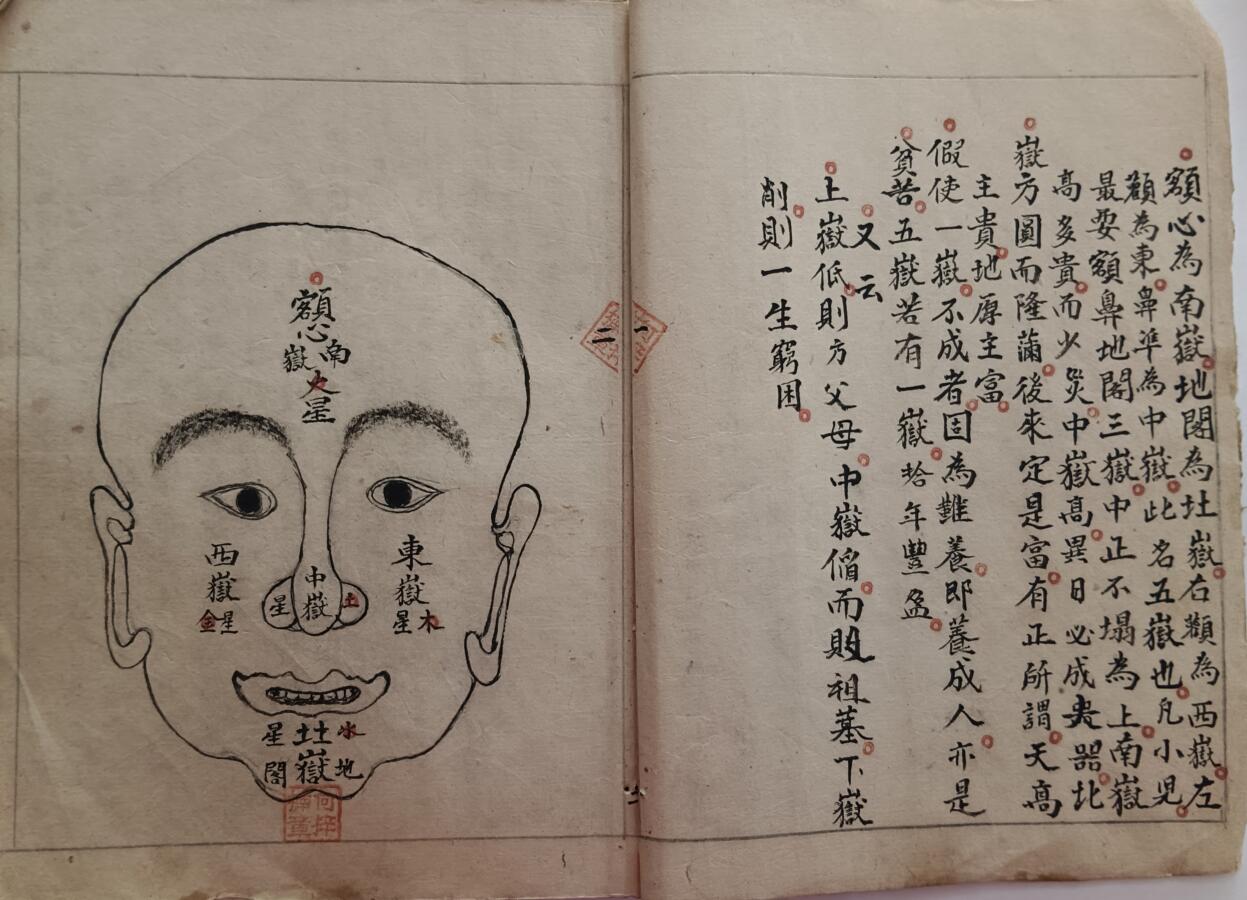 額心為南嶽地閣為北嶽右顴為西嶽左
顴為東鼻準為中嶽此名五嶽也凡小児
最要額鼻地閣三嶽中正不塌為上南嶽
高多貴而少災中嶽高異日必成貴器北
嶽方圓而隆滿後來定是富有正所謂天高
主貴地厚主富
假使一嶽不成者固為難養即養成人亦是
貧苦五嶽若有一嶽拾年豐盈
又云
上嶽低則方父母中嶽偏而敗祖墓下嶽
削則一生窮困
額心
南
嶽
火星
西嶽
金星
中嶽
土
星
東嶽
木
星
水
北嶽
星
地
閣
一
二